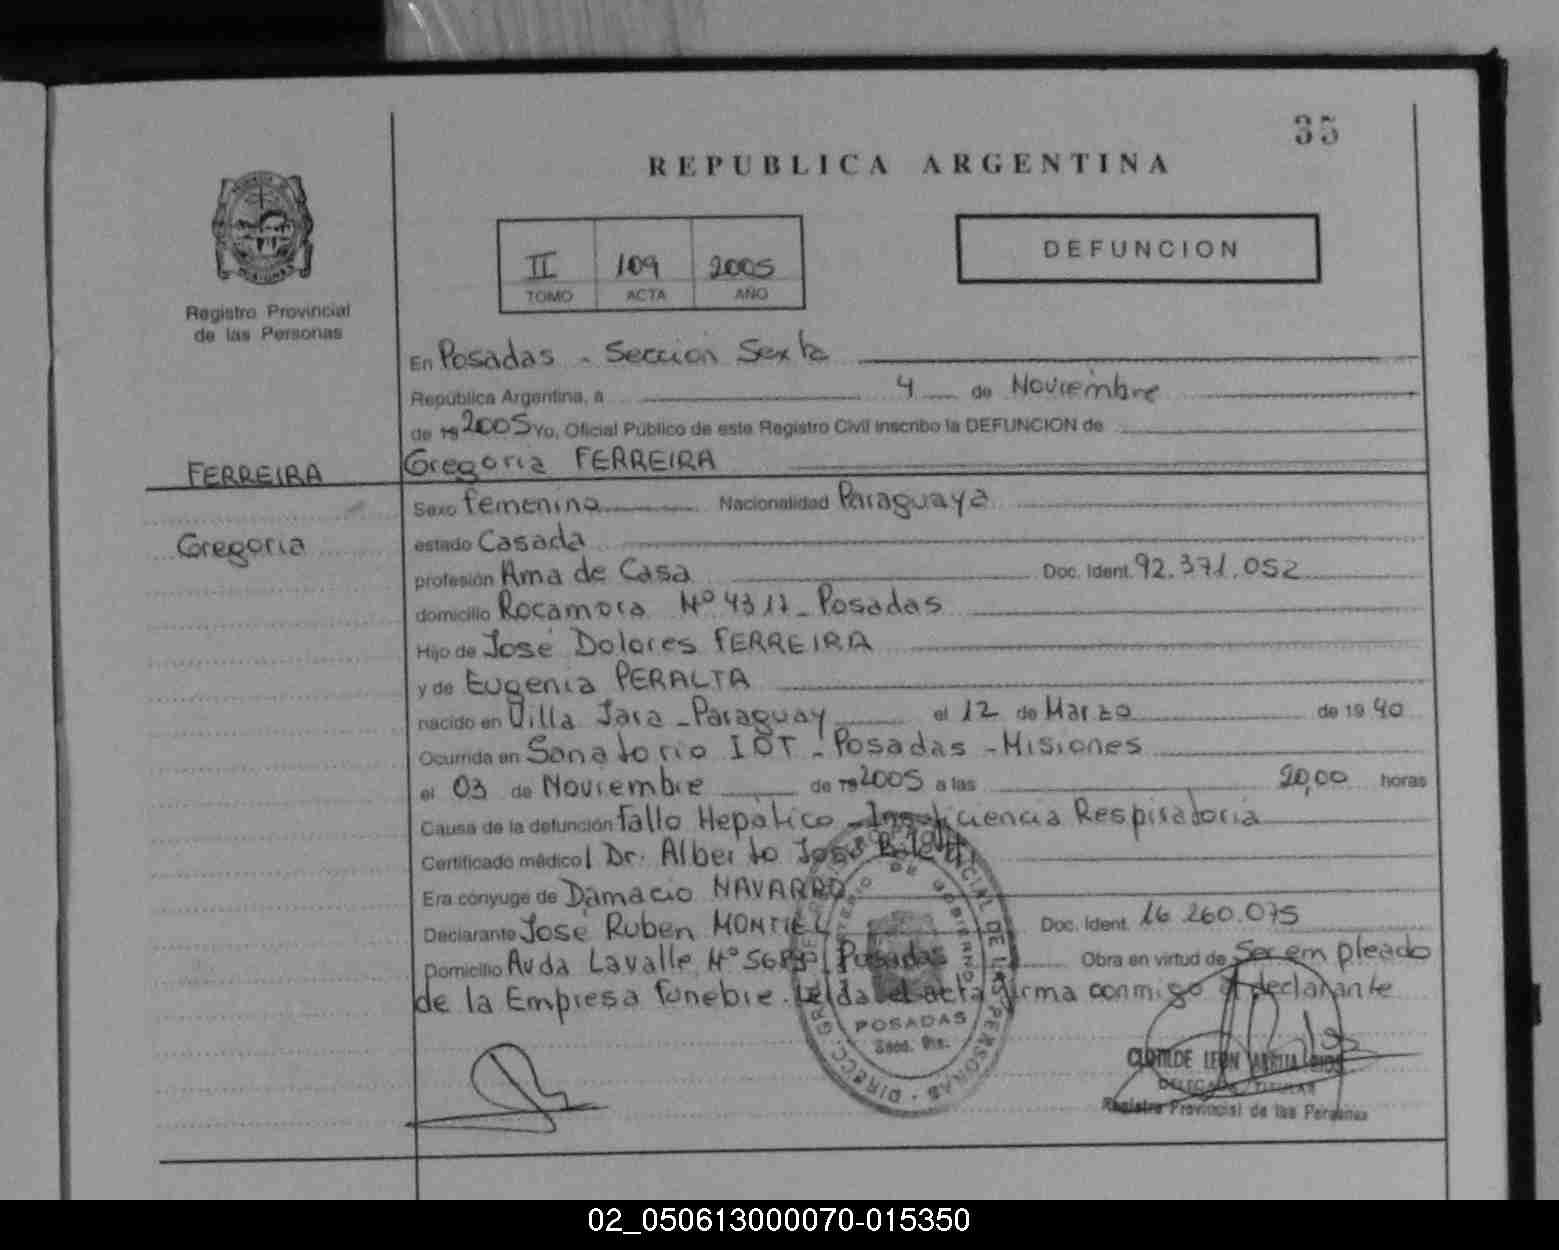 35
REPUBLICA ARGENTINA
II 109 2005
TOMO ACTA AÑO
DEFUNCION
Registro Provincial
de las Personas
En Posadas - Sección Sexta
República Argentina, a 4 de Noviembre
de 19 2005 Yo, Oficial Público de este Registro Civil inscribo la DEFUNCION de
FERREIRA
Gregoria FERREIRA
Sexo femenino Nacionalidad Paraguaya
Gregoria
estado Casada
profesión Ama de Casa Doc. Ident. 92.371.052
domicilio Rocamora Nº 4317 - Posadas
Hijo de José Dolores FERREIRA
y de Eugenia PERALTA
nacido en Villa Jara - Paraguay el 12 de Marzo de 19 40
Ocurrida en Sanatorio IOT - Posadas - Misiones
el 03 de Noviembre de 19 2005 a las 20,00 horas
Causa de la defunción fallo Hepático - Insuficiencia Respiratoria
Certificado médico Dr. Alberto José
Era cónyuge de Damacio NAVARRO
Declarante José Ruben MONTIEL Doc. Ident. 16.260.075
Domicilio Avda Lavalle Nº Posadas Obra en virtud de Ser empleado
de la Empresa funebre. Leida el acta firma conmigo el declarante
POSADAS
Secc. 6ta.
CLOTILDE LEON
DELEGADA TITULAR
Registro Provincial de las Personas
02_050613000070-015350